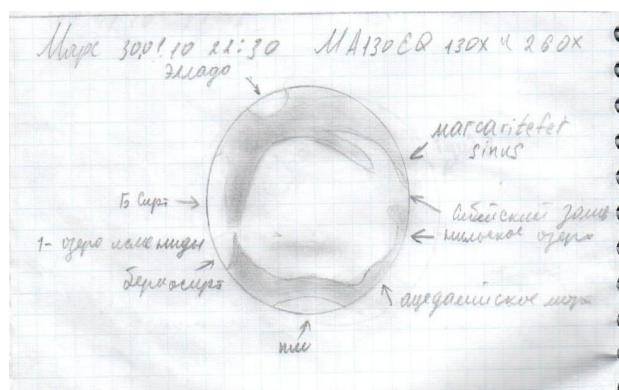 Марс 30.01.10 22:30 МА130EQ 130X и 260X
Элладо
Marcaritefer
sinus
Б Сирт
Сабейский залив
нильское озеро
1- озеро исмениды
ацедалийское море